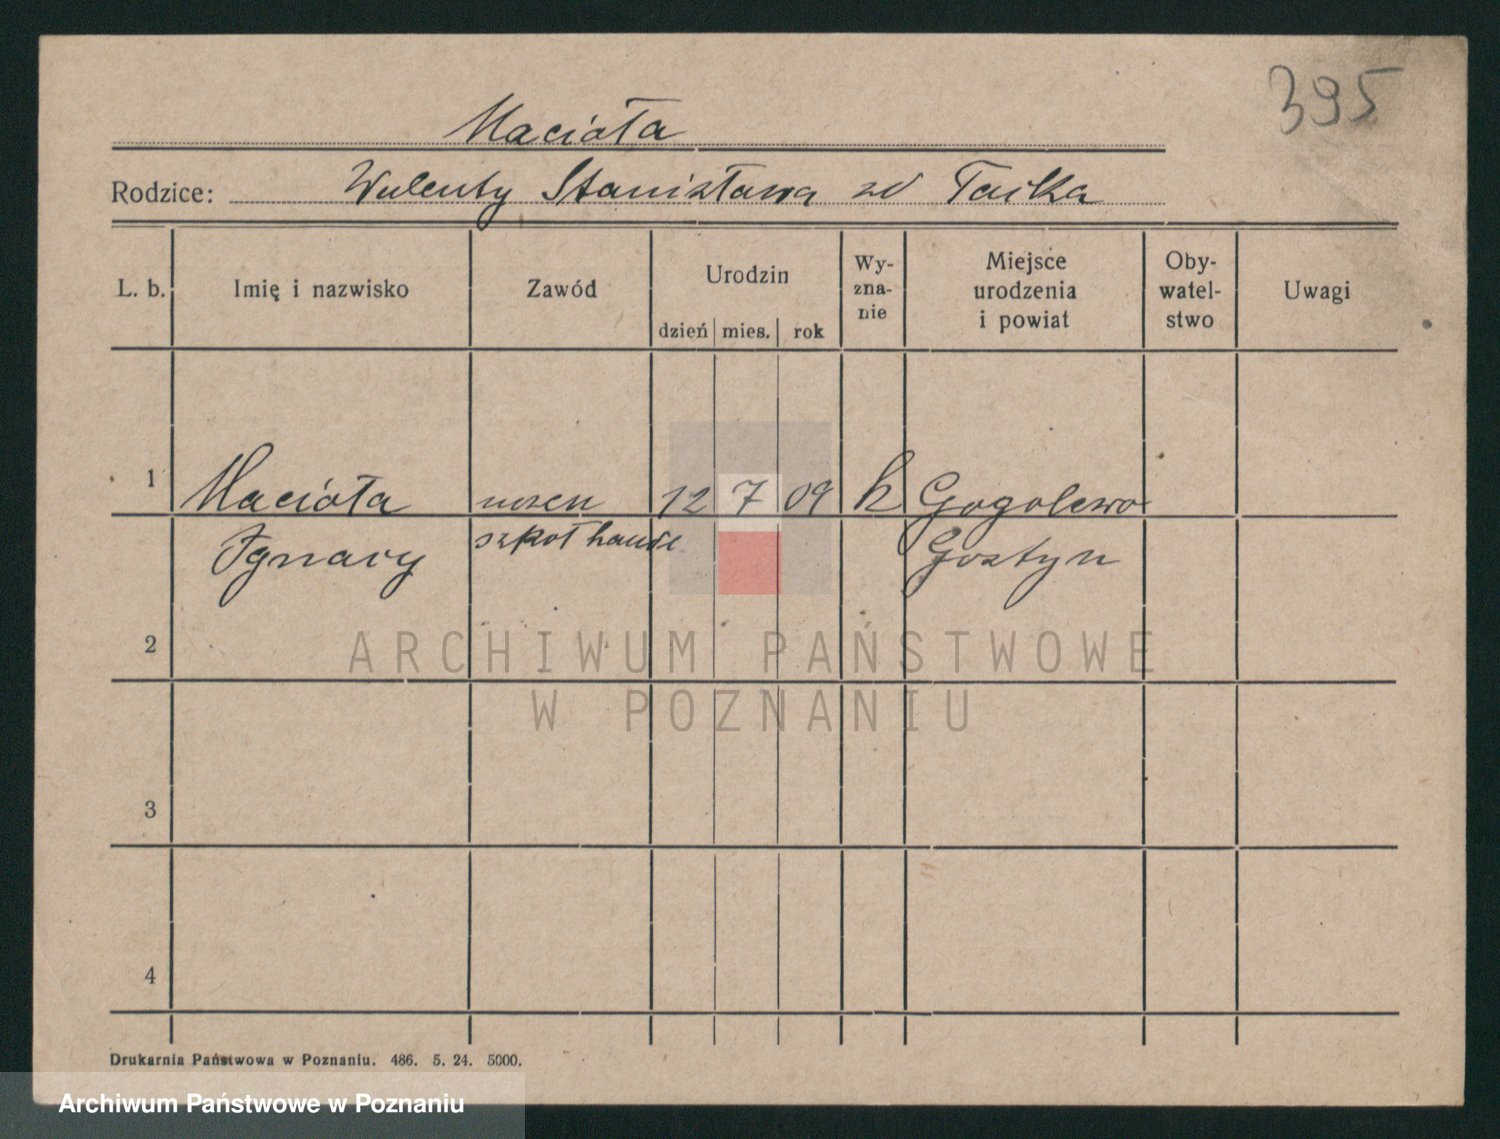 395
Macioła
Rodzice: Walenty Stanisława zd
L. b. Imię i nazwisko Zawód Urodzin dzień mies. rok Wy-zna-nie Miejsce urodzenia i powiat Oby-watel-stwo Uwagi
1 Macioła uczeń 12 7 09 k Gogolewo
Ignacy szkoł handl Gostyn
2
ARCHIWUM PAŃSTWOWE
W POZNANIU
3
4
Drukarnia Państwowa w Poznaniu. 486. 5. 24. 5000.
Archiwum Państwowe w Poznaniu